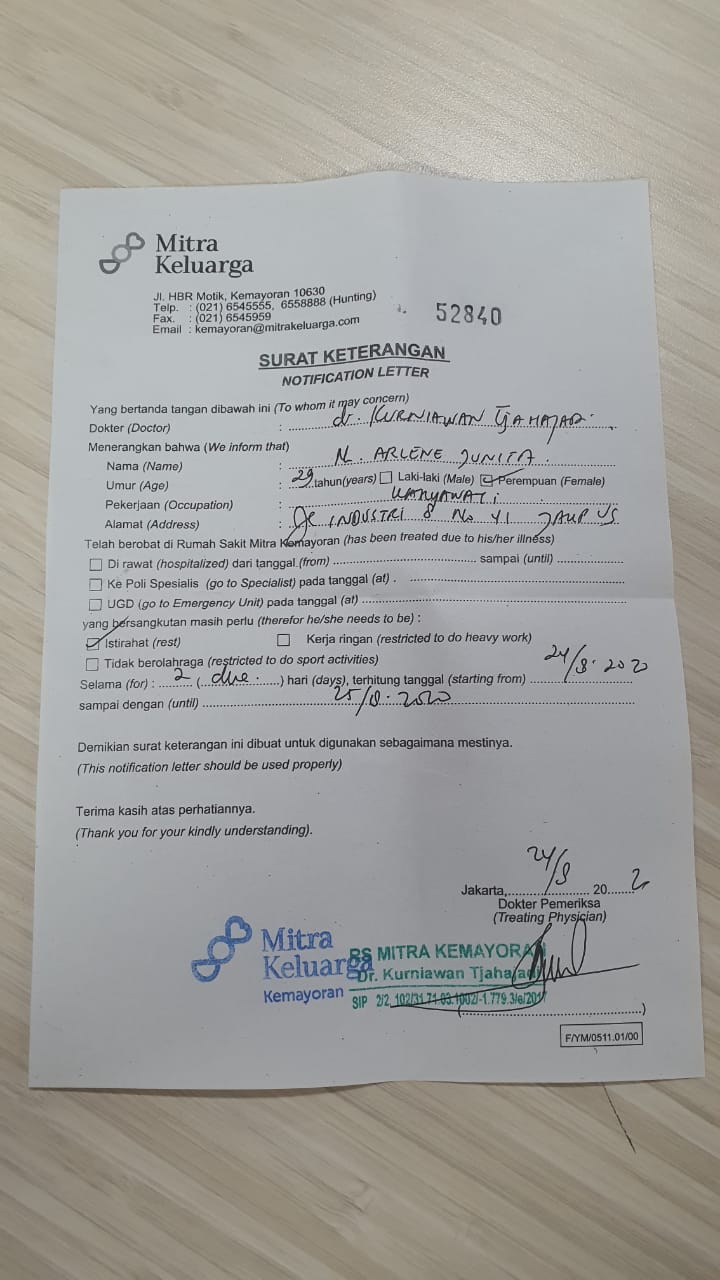 Mitra
Keluarga
Jl. HBR Motik, Kemayoran 10630
Telp. : (021) 6545555, 6558888 (Hunting)
Fax. : (021) 6545959
Email : kemayoran@mitrakeluarga.com
52840
SURAT KETERANGAN
NOTIFICATION LETTER
Yang bertanda tangan dibawah ini (To whom it may concern)
Dokter (Doctor) : dr. KURNIAWAN TJAHAJADI
Menerangkan bahwa (We inform that)
Nama (Name) : N. ARLENE JUNITA
Umur (Age) : 29 tahun(years) Laki-laki (Male) Perempuan (Female)
Pekerjaan (Occupation) : KARYAWATI
Alamat (Address) : INDUSTRI 8 No 41
Telah berobat di Rumah Sakit Mitra Kemayoran (has been treated due to his/her illness)
Di rawat (hospitalized) dari tanggal (from) sampai (until)
Ke Poli Spesialis (go to Specialist) pada tanggal (at) .
UGD (go to Emergency Unit) pada tanggal (at)
yang bersangkutan masih perlu (therefor he/she needs to be) :
Istirahat (rest) Kerja ringan (restricted to do heavy work)
Tidak berolahraga (restricted to do sport activities)
Selama (for) : 2 ( due ) hari (days), terhitung tanggal (starting from) 24/8.2020
sampai dengan (until) 25/8.2020
Demikian surat keterangan ini dibuat untuk digunakan sebagaimana mestinya.
(This notification letter should be used properly)
Terima kasih atas perhatiannya.
(Thank you for your kindly understanding).
Jakarta, 24/8 20 2
Dokter Pemeriksa
(Treating Physician)
Mitra
Keluarga
Kemayoran
RS MITRA KEMAYORAN
Dr. Kurniawan Tjahajadi
SIP 2/2.102/31.71.03.1002/-1.779.3/e/2017
(        )
F/YM/0511.01/00